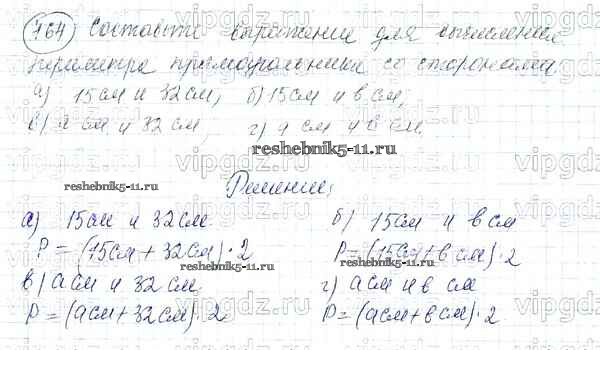 764 Составьте выражение для вычисления
периметра прямоугольника со сторонами:
а) 15 см и 32 см, б) 15 см и в см,
в) а см и 32 см, г) а см и в см.
reshebnik5-11.ru
Решение:
reshebnik5-11.ru
а) 15 см и 32 см. б) 15 см и в см
P = (15 см + 32 см) · 2 P = (15 см + в см) · 2
reshebnik5-11.ru
в) а см и 32 см г) а см и в см
P = (а см + 32 см) · 2 P = (а см + в см) · 2.
reshebnik5-11.ru
vipgdz.ru